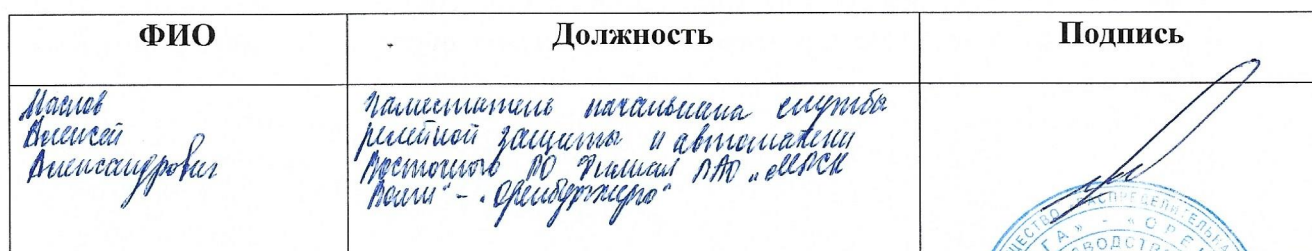 ФИО Должность Подпись
Маслов
Алексей
Александрович
Заместитель начальника службы
релейной защиты и автоматики
Восточного ПО Филиал ПАО „МРСК
Волги" - „Оренбургэнерго"